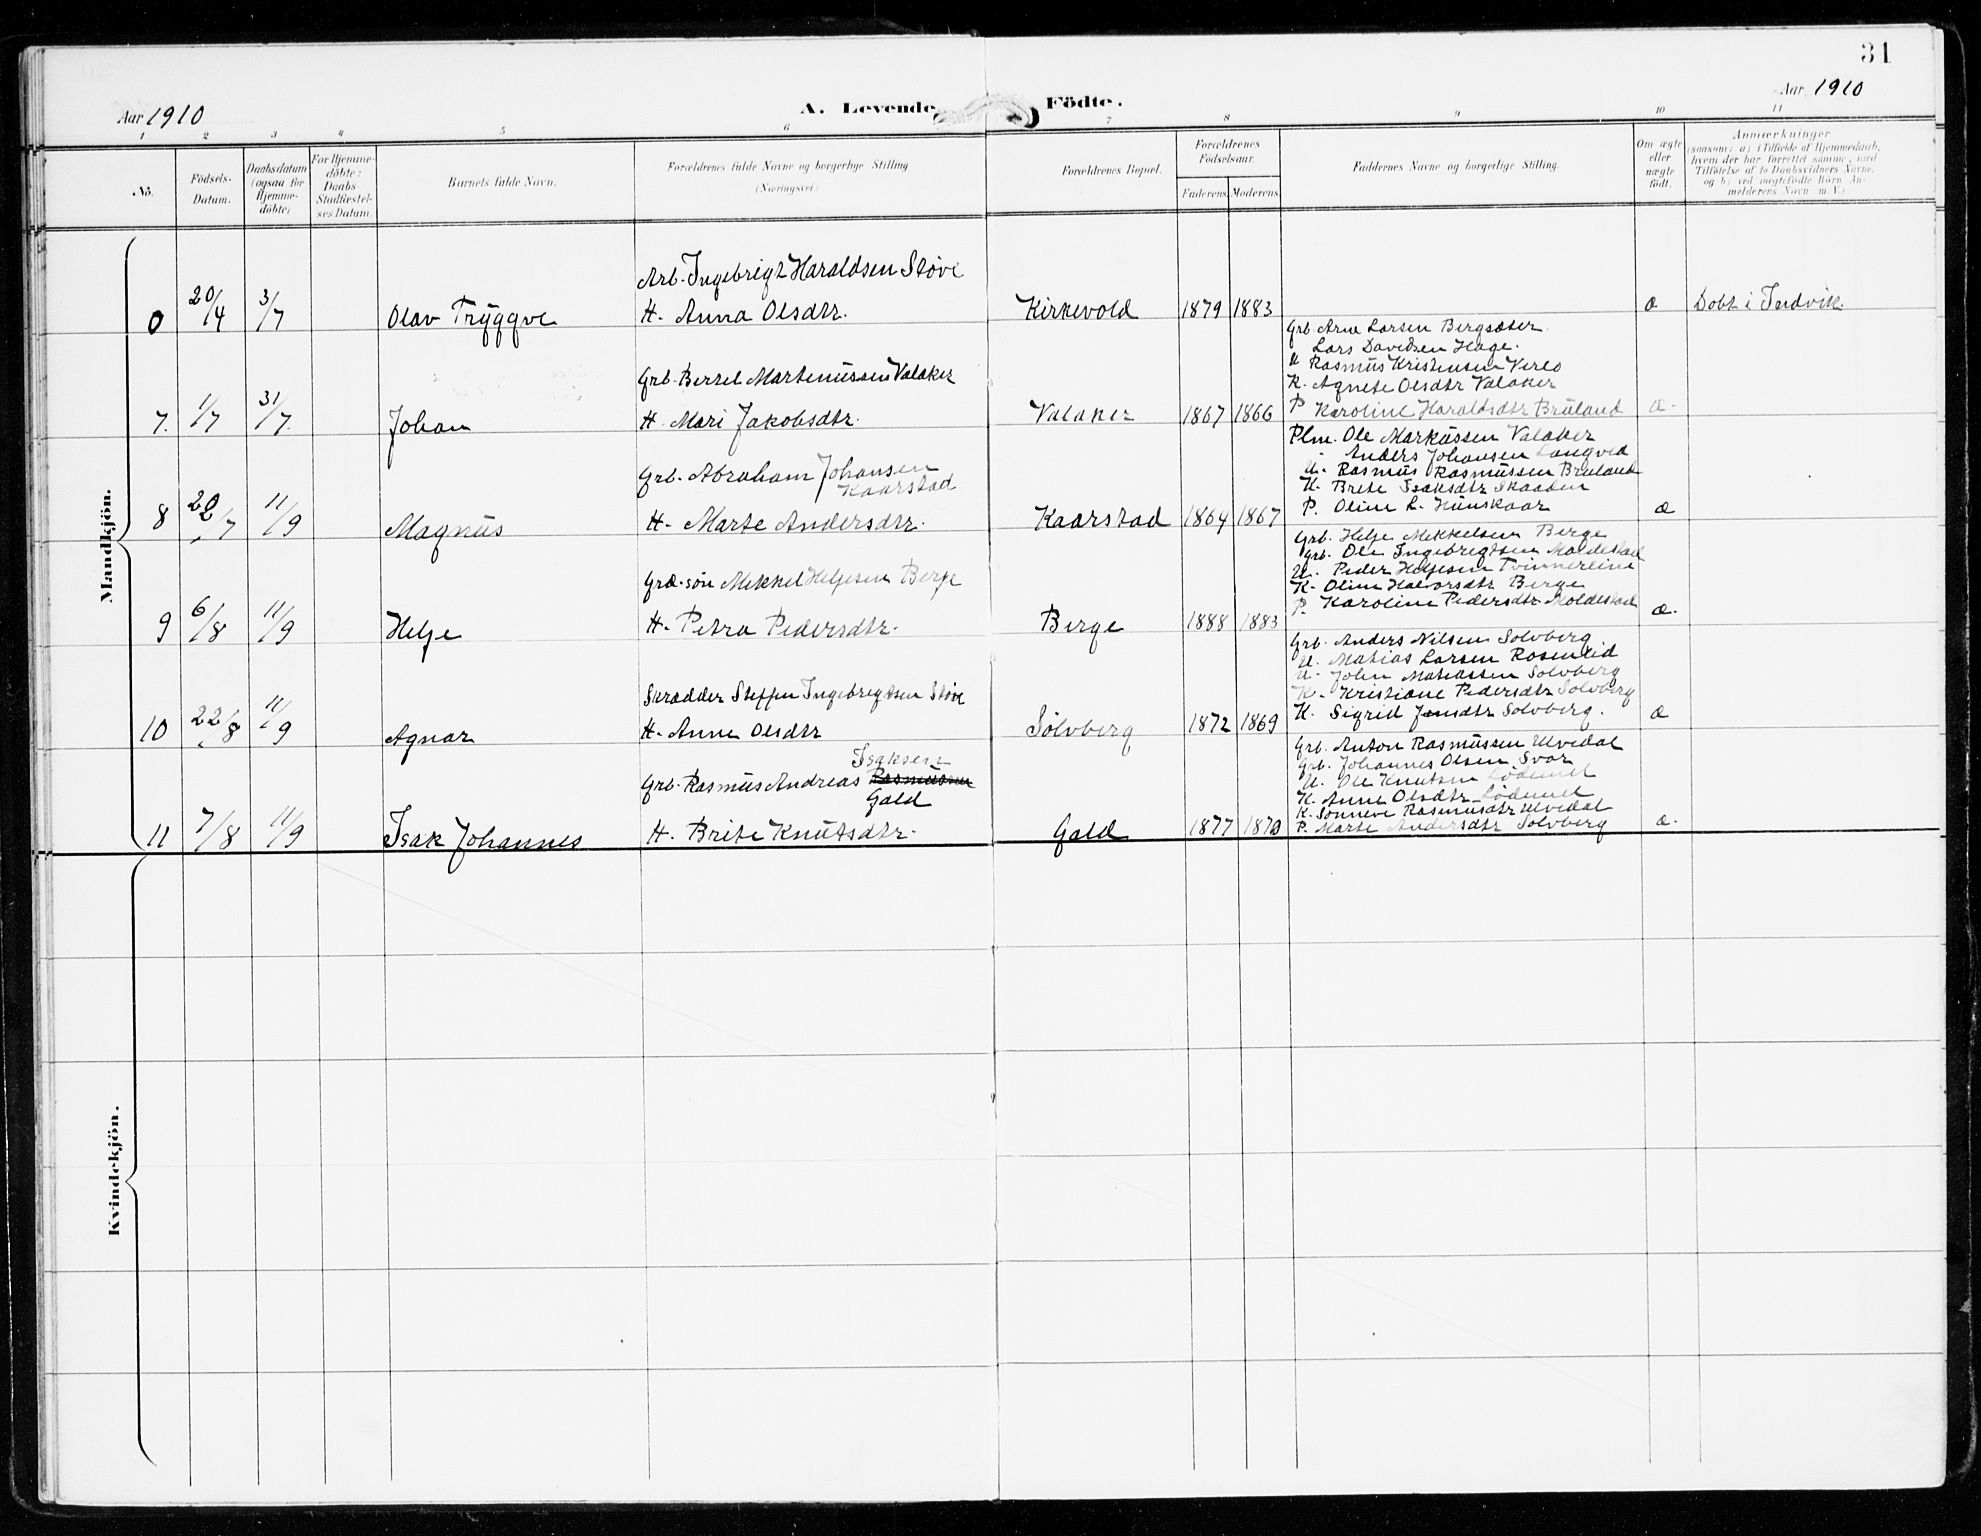 31
Aar 1910
A. Levende Födte.
Aar 1910
1 2 3 4 5 6 7 8 9 10 11
No.
Födsels-Datum.
Daabsdatum (ogsaa for Hjemme-döbte)
For Hjemme-döbte: Daabs-Stadfæstel-ses Datum
Barnets fulde Navn.
Forældrenes fulde Navne og borgerlige Stilling
(Næringsvei)
Forældrenes Bopæl.
Forældrenes Födselsaar.
Faderens. Moderens.
Faddernes Navne og borgerlige Stilling.
Om ægte eller uægte födt.
Anmærkninger
(saasom: a) i Tilfælde af Hjemmedaab,
hvem der har forrettet samme, med
Tilföielse af to Daabsvidners Navne,
og b) ved uægtefödte Börn An-
melderens Navn m. V.)
Mandkjön.
Arb. Ingebrigt Haraldsen Støve
0 20/4 3/7 Olav Tryggve H. Anna Olsdtr. Kirkevold 1879 1883 Æ Døbt i Indvik.
Grb. Arne Larsen Bergsæter.
Lars Davidsen Hage.
Grb. Bertel Martinussen Valaker
U Rasmus Kristensen
K. Agnete Olsdtr Valaker
7. 1/7 31/7. Johan H. Mari Jakobsdtr. Valaker 1867 1866 P Karoline Haraldsdtr Bruland æ.
Plm. Ole Markussen Valaker
Anders Johansen Langved
Grb. Abraham Johansen
Kaarstad
U. Rasmus Rasmussen Bruland
K. Brite Isaksdtr Skaaden
8 20/7 11/9 Magnus H. Marte Andersdtr. Kaarstad 1864 1867 P. Oline L. Hunskaar æ
Grb. Helje Mikkelsen Berge
Grb. Ole Ingebregtsen Moldestad
Grd.søn Mikkel Heljesen Berge
U. Peder Heljesen Tvinnereim
K. Oline Halvorsdtr Berge
9 6/8 11/9 Helje H. Petra Pedersdtr. Berge 1888 1883 P. Karoline Pedersdtr Moldestad æ.
Grb. Anders Nilsen Solvberg
U. Matias Larsen Rosenlid
Skrædder Steffen Ingebregtsen Støve
U. John Matiassen Solvberg
K. Kristiane Pedersdtr Solvberg
10 22/8 11/9 Agnar H. Anne Olsdtr Sølvberg 1872 1869 K. Sigrid Jensdtr Solvberg. æ
Grb. Anton Rasmussen Ulvedal
Isaksen
Grb. Johannes Olsen Svor
Grb. Rasmus Andreas Rasmussen
Gald
U. Ole Knutsen Lødemel
K. Anne Olsdtr Lødemel
K. Sonneve Rasmusdtr Ulvedal
11 7/8 11/9 Isak Johannes H. Brite Knutsdtr. Gald 1877 P. Marte Andersdtr Solvberg æ.
Kvindekjön.